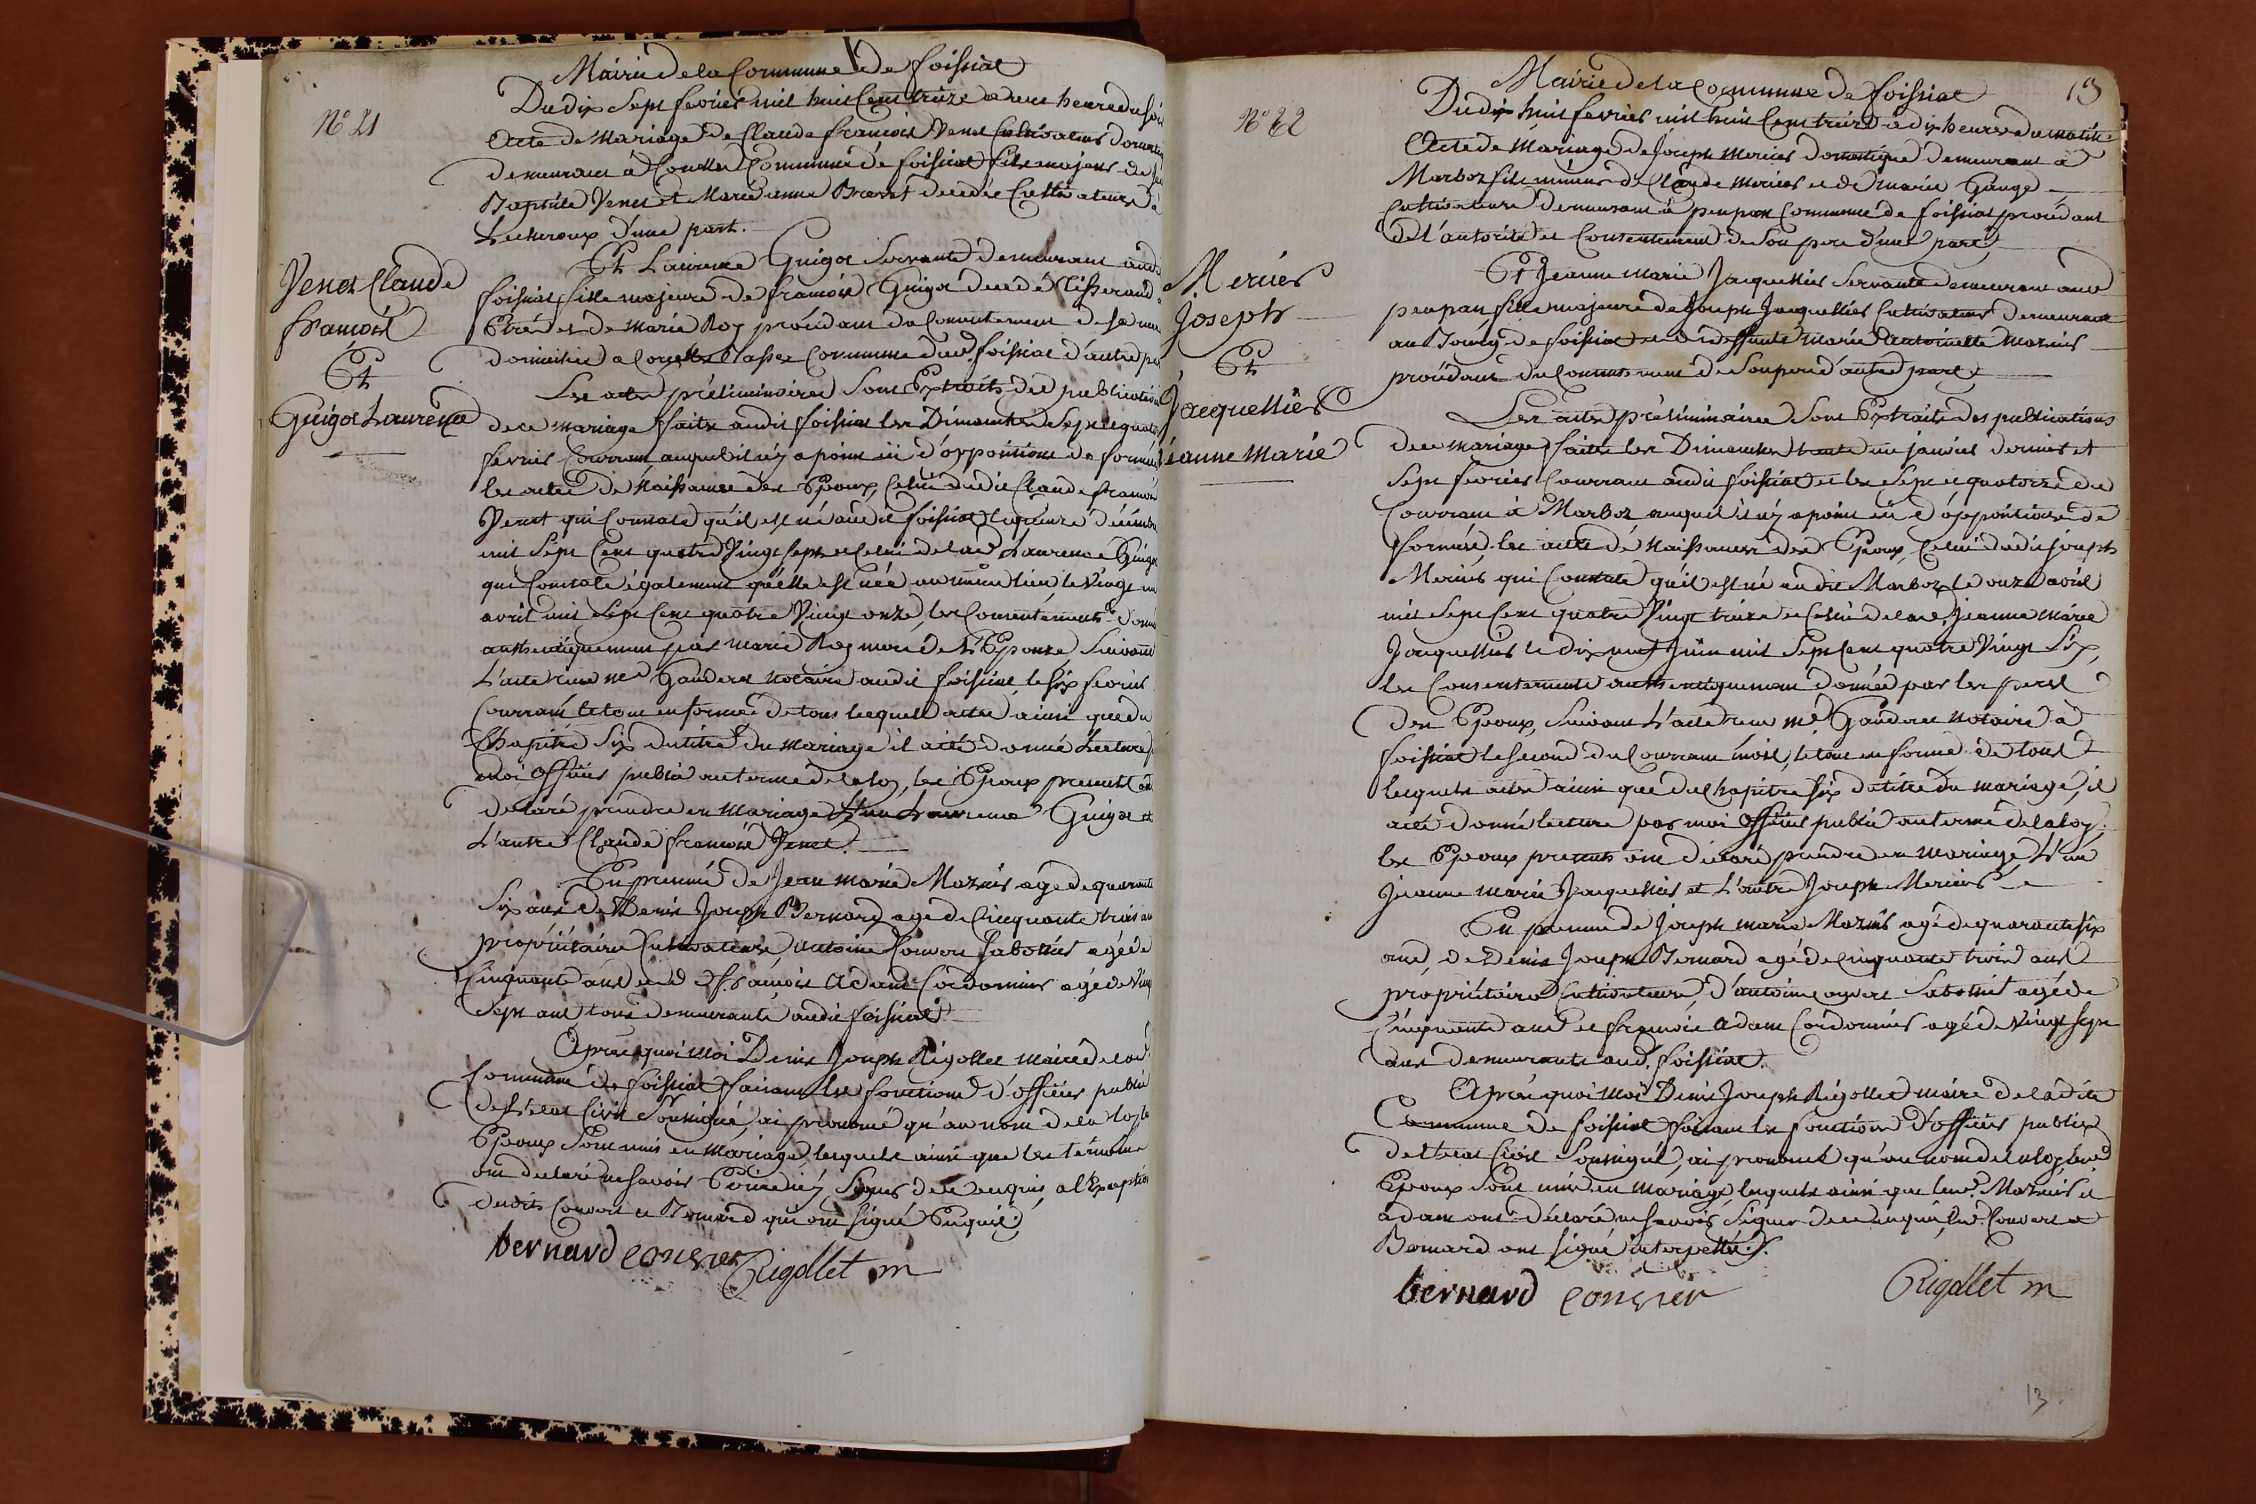 Mairie de la Commune de foissiat
N° 21
Du dix Sept fevrier mil huit Cent treize a une heure du soir
Acte de Mariage de Claude françois Venet Cultivateur
demeurant à Commune de foissiat fils majeur de
Baptiste Venet et Marie anne décédée Cultivateurs à
Lecheroux d'une part.
Et Laurence Guigot Servante demeurant audit
foissiat fille majeure de françois Guigot décédé Tisserand à
Etrés et de Marie Roy procédant du Consentement de sa mere
domiciliée a Basse Commune dud. foissiat d'autre part
Venet Claude
françois
Et
Guigot Laurence
Les actes préliminaires Sont Extraits des publications
de ce mariage faites audit foissiat les Dimanches Sept et quatorze
fevrier Courrant auquel il n'y a point eu d'oppositions de formées
les actes de Naissance des Epoux, Celui dudit Claude françois
Venet qui Constate qu'il est né audit foissiat le quinze décembre
mil Sept Cent quatre Vingt Sept et Celui de lad. Laurence Guigot
qui Constate également qu'elle est née au même lieu le Vingt un
avril mil Sept Cent quatre Vingt onze, les Consentements donnés
authentiquement par marie Roy mere de l'Epouse Suivant
L'acte recu me Gauderet Notaire audit foissiat le six fevrier
Courrant le tout en forme de tous lesquels actes ainsi que du
Chapitre Six du titre du mariage il a été donné Lecture par
moi officier public au terme de la loy, les Epoux presents ont
declaré prendre en Mariage L'un Laurence Guigot et
L'autre Claude françois Venet.
En presence de Jean marie Mazuis agé de quarante
Six ans de Denis Joseph Bernard agé de Cinquante trois ans
propriétaires Cultivateurs, Antoine Convert Sabotier agé de
Cinquante ans et de françois Adam Cordonnier agé de Vingt
Sept ans tous demeurants audit foissiat.
Apres quoi Moi Denis Joseph Rigollet maire de lad.
Commune de foissiat faisant les fonctions d'officier public
de l'etat Civil Soussigné, ai prononcé qu'au nom de la Loy les
Epoux Sont unis en Mariage lesquels ainsi que les témoins
ont declaré ne Savoir Ecrire ni Signer de ce enquis a l'Exception
dudit Convert et Bernard qui ont Signé Enquis.
bernard convert Rigollet m
Mairie de la Commune de foissiat
13
N° 22
Du dix huit fevrier mil huit Cent treize à dix heures du matin
Acte de Mariage de Joseph Mercier domestique demeurant à
Marboz fils mineur de Claude Mercier et de marie Gauge
Cultivateurs demeurant à peupan Commune de foissiat procédant
de l'autorité et Consentement de Son pere d'une part
Mercier
Joseph
Et
Jacquellier
Jeanne Marie
Et Jeanne marie Jacquellier Servante demeurant aud.
peupan fille majeure de Joseph Jacquellier Cultivateur demeurant
au Bourg de foissiat et de deffunte Marie Antoinette Mazuis
procédant du Consentement de Son pere d'autre part.
Les actes préliminaires Sont Extraits des publications
de ce mariage faites les Dimanches trente un janvier dernier et
Sept fevrier Courrant audit foissiat et les Sept et quatorze du
Courrant à Marboz auquel il n'y a point eu d'oppositions de
formées, les actes de Naissances des Epoux, Celui dudit Joseph
Mercier qui Constate qu'il est né audit Marboz le onze avril
mil Sept Cent quatre Vingt treize et Celui de lad. Jeanne Marie
Jacquellier le dix neuf Juin mil Sept Cent quatre Vingt Six,
les Consentements authentiquement donnés par les peres
des Epoux, Suivant L'acte recu me Gauderet notaire à
foissiat le Second du Courrant mois, le tout en forme de tous
lesquels actes ainsi que du Chapitre Six du titre du mariage, il
a été donné lecture par moi officier public au terme de la loy.
les Epoux presents ont declaré prendre en Mariage L'un
Jeanne marie Jacquellier et L'autre Joseph Mercier.
En presence de Joseph marie Mazuis agé de quarante six
ans, de Denis Joseph Bernard agé de Cinquante trois ans
propriétaires Cultivateurs, d'antoine Convert Sabotier agé de
Cinquante ans et françois Adam Cordonnier agé de Vingt Sept
ans demeurants aud. foissiat.
Apres quoi Moi Denis Joseph Rigollet maire de ladite
Commune de foissiat faisant les fonctions d'officier public
de l'etat Civil Soussigné, ai prononcé qu'au nom de la loy lesd.
Epoux Sont unis en Mariage, lesquels ainsi que lesd. Mazuis et
adam ont déclaré ne Savoir Signer de ce enquis, lesd. Convert et
Bernard ont Signé interpellés.
bernard convert Rigollet m
13